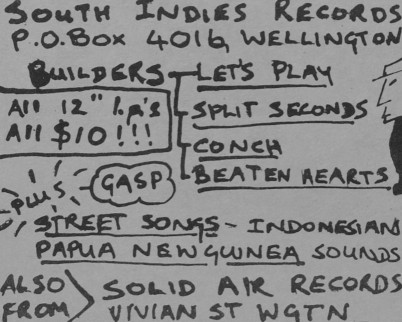 SOUTH INDIES RECORDS
P.O. BOX 4016, WELLINGTON
BUILDERS
LET'S PLAY
All 12" l.p's
All $10!!!
SPLIT SECONDS
CONCH
BEATEN HEARTS
PLUS
GASP
STREET SONGS - INDONESIAN
PAPUA NEW GUNEA SOUNDS
ALSO
FROM
SOLID AIR RECORDS
VIVIAN ST WGTN